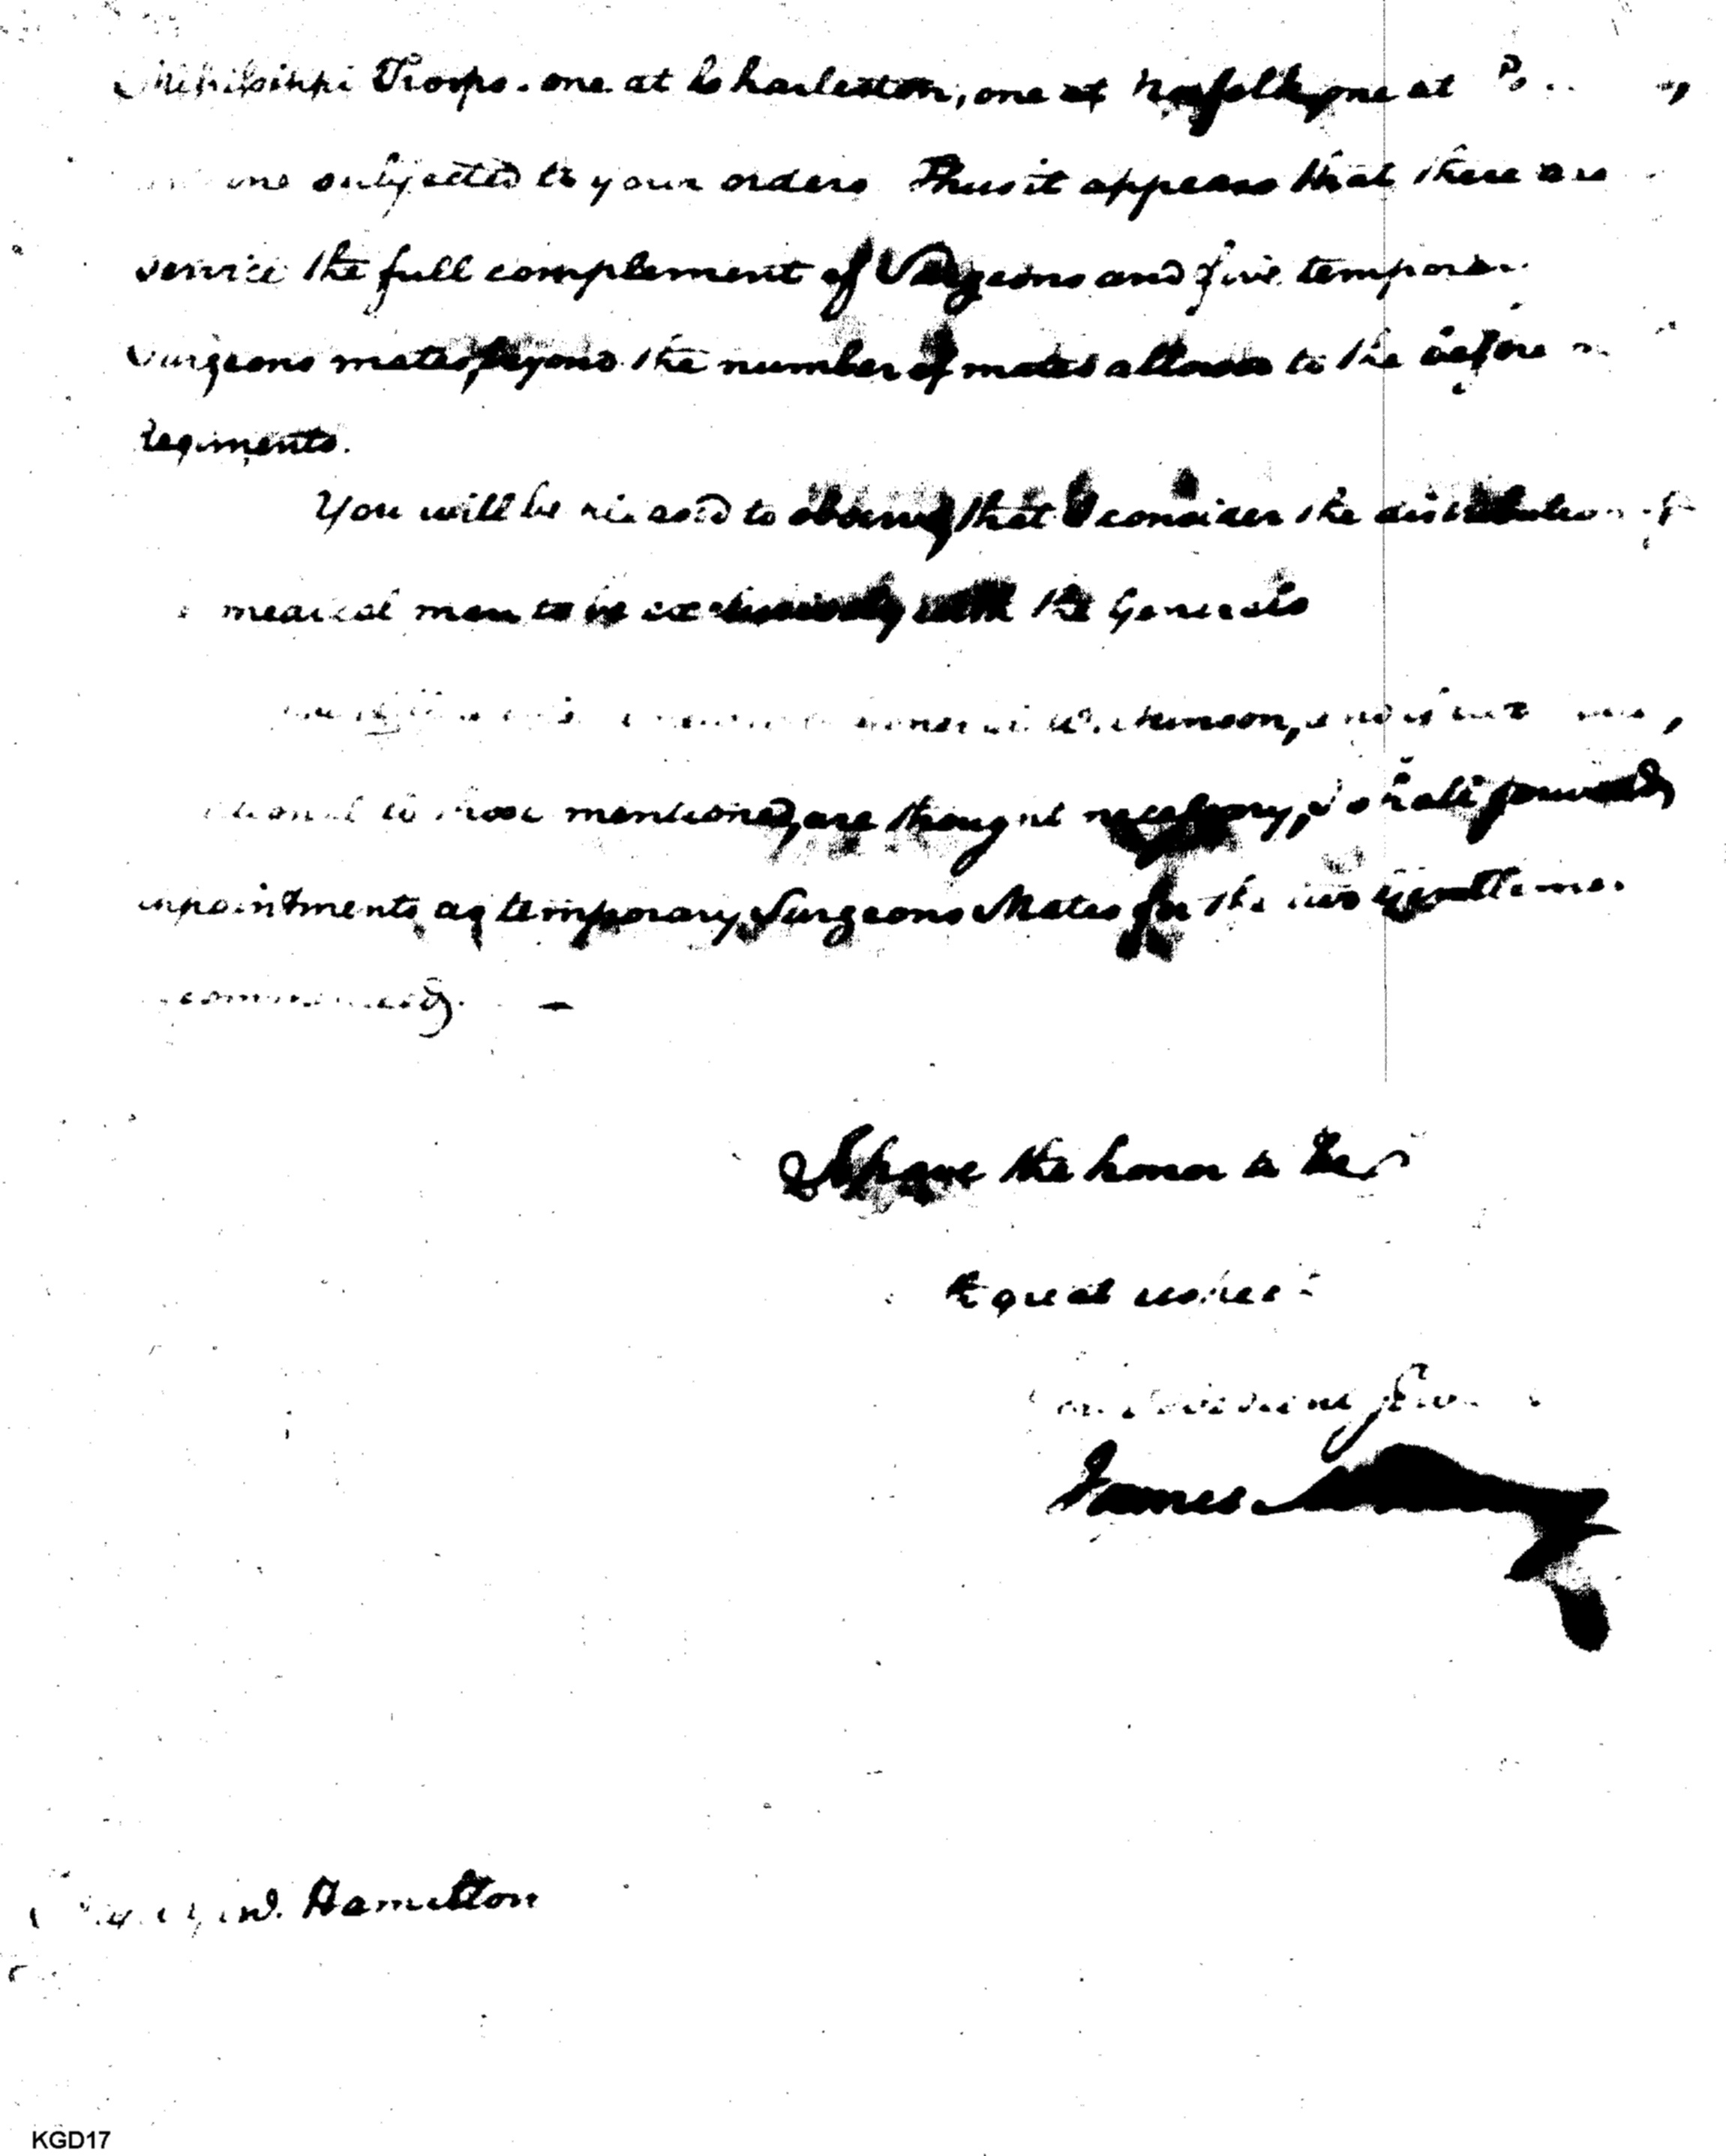 Missisippi Troops. one at Charleston, one at Norfolk, one at
one subjected to your orders Thus it appears that there are
service the full complement of Surgeons and five temporary
Surgeons mates, beyond the number of mates allowed to the before
regiments.
You will be pleased to observe, that I consider the distribution of
medical men to be exclusively with the Generals
General Wilkinson,
to those mentioned, are thought necessary, I shall
appointments as temporary Surgeons Mates for the two Gentlemen
recommended. —
I have the honor to be
great respect
obedient
James
Hamilton
KGD17